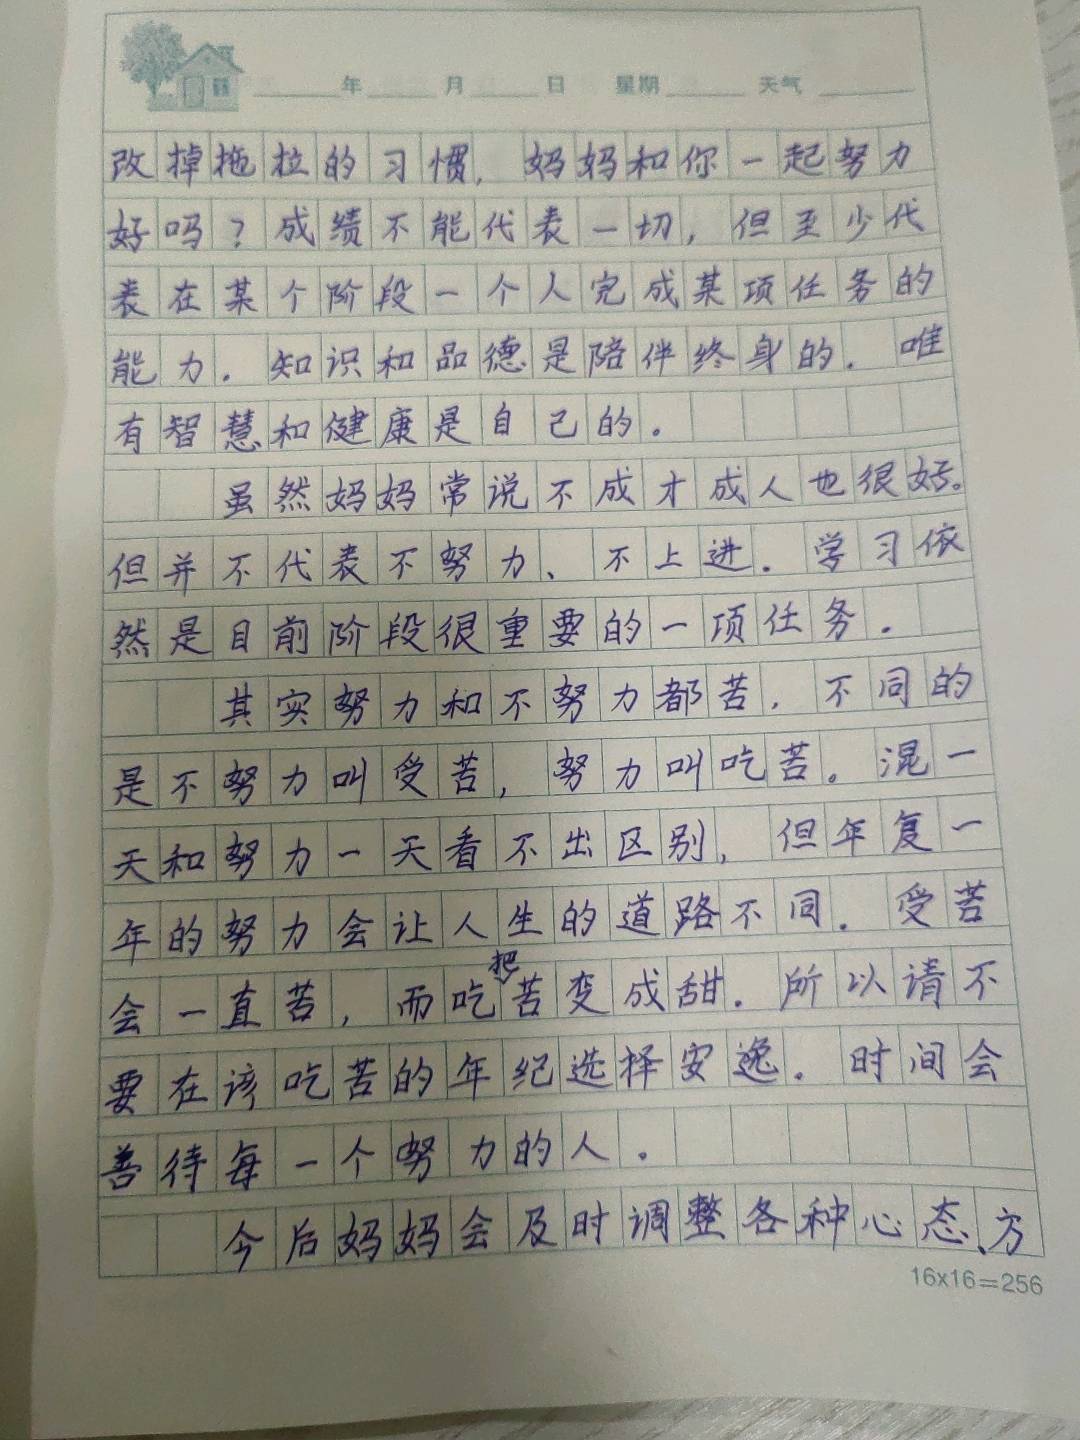 年 月 日 星期 天气
改掉拖拉的习惯，妈妈和你一起努力
好吗？成绩不能代表一切，但至少代
表在某个阶段一个人完成某项任务的
能力．知识和品德是陪伴终身的．唯
有智慧和健康是自己的。
虽然妈妈常说不成才成人也很好。
但并不代表不努力、不上进．学习依
然是目前阶段很重要的一项任务．
其实努力和不努力都苦，不同的
是不努力叫受苦，努力叫吃苦。混一
天和努力一天看不出区别，但年复一
年的努力会让人生的道路不同．受苦
会一直苦，而吃把苦变成甜．所以请不
要在该吃苦的年纪选择安逸．时间会
善待每一个努力的人．
今后妈妈会及时调整各种心态、方
16x16=256